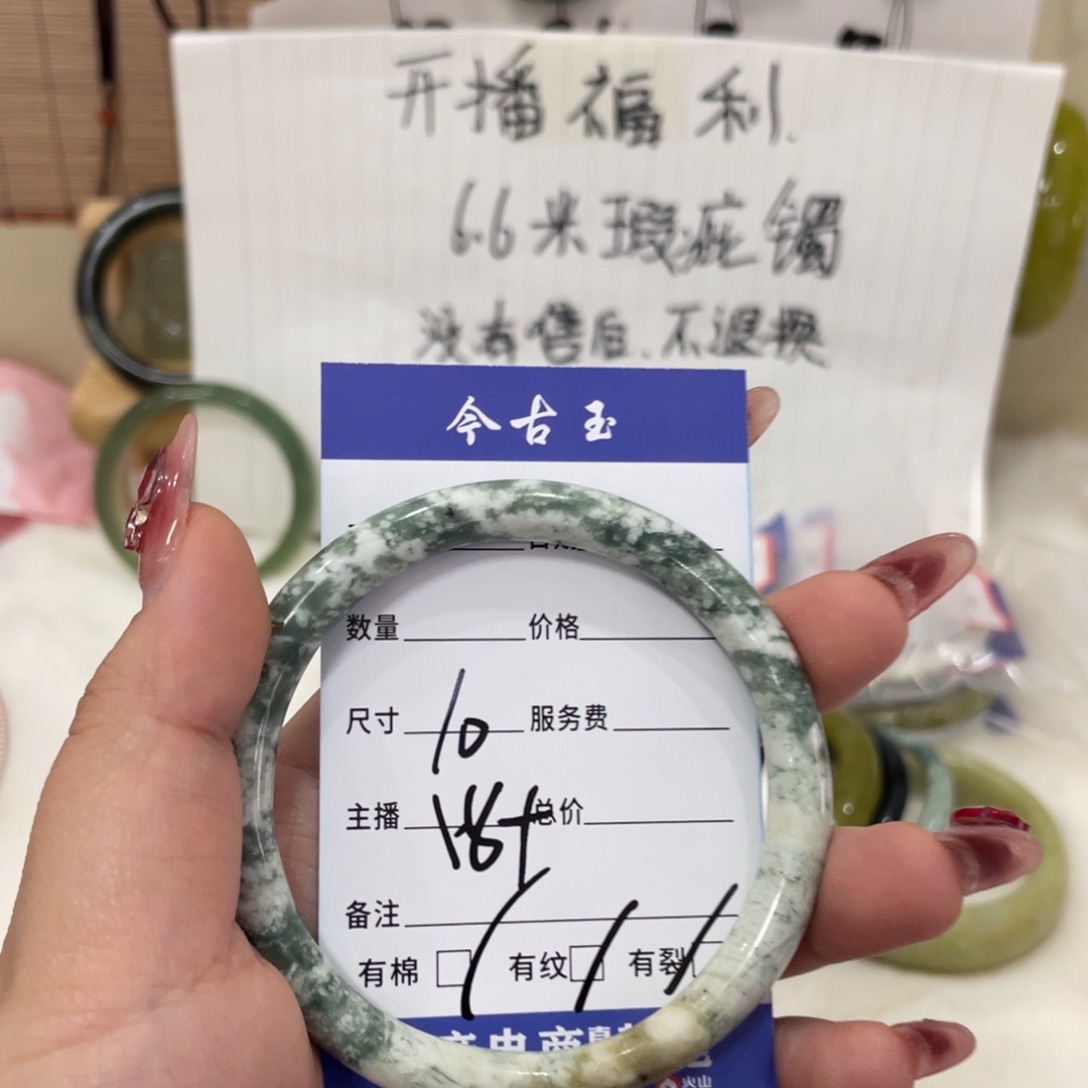 开播福利.
6.6米瑕疵镯
没有售后.不退换
今古玉
数量 价格
尺寸 10 服务费
主播 总价
备注
有棉 有纹 有裂
电商
火山